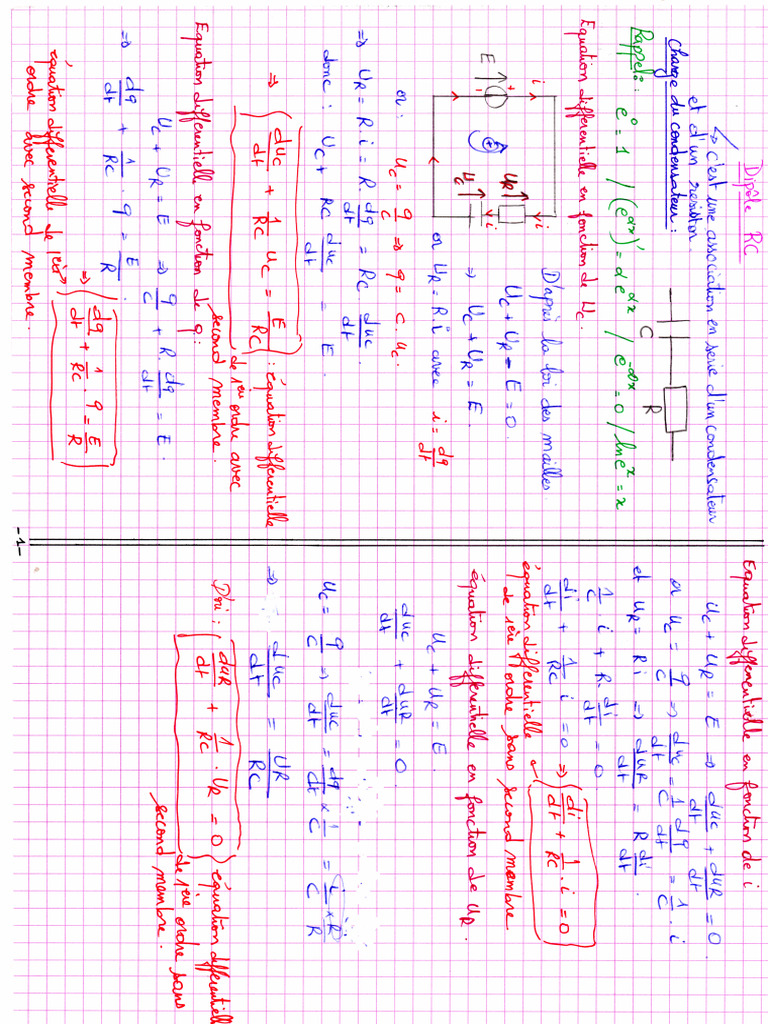 Dipôle RC
↳ c'est une association en serie d'un condensateur
et d'un resistor.
C R
Charge du condensateur :
Rappel : e⁰ = 1 / (e^{αx})' = αe^{αx} / e^{-∞} = 0 / ln e^x = x
Equation differentielle en fonction de Uc.
E
i
+
-
+
UR
Uc
i
i
D'après la loi des mailles
Uc + UR - E = 0.
⇒ Uc + UR = E.
or UR = R.i avec i = dq/dt
or : uc = q/C ⇒ q = C.uc.
⇒ UR = R.i = R.dq/dt = RC duc/dt.
donc : Uc + RC duc/dt = E.
⇒ duc/dt + 1/RC uc = E/RC : équation différentielle
de 1er ordre avec
second membre.
Equation differentielle en fonction de q :
Uc + UR = E ⇒ q/C + R.dq/dt = E.
⇒ dq/dt + 1/RC . q = E/R. ⇒ dq/dt + 1/RC . q = E/R
équation differentielle de 1er
ordre avec second membre.
-1-
Equation differentielle en fonction de i
Uc + UR = E ⇒ duc/dt + duR/dt = 0.
or uc = q/C ⇒ duc/dt = 1/C dq/dt = 1/C . i
et UR = R i ⇒ duR/dt = R di/dt.
1/C i + R.di/dt = 0
di/dt + 1/RC i = 0 ⇒ di/dt + 1/RC . i = 0
équation differentielle
de 1ère ordre sans second membre
équation differentielle en fonction de UR.
Uc + UR = E.
duc/dt + duR/dt = 0.
Uc = q/C ⇒ duc/dt = dq/dt × 1/C = i/C × R/R
⇒ duc/dt = UR/RC
D'où : duR/dt + 1/RC . UR = 0 équation differentielle
de 1ère ordre sans
second membre.